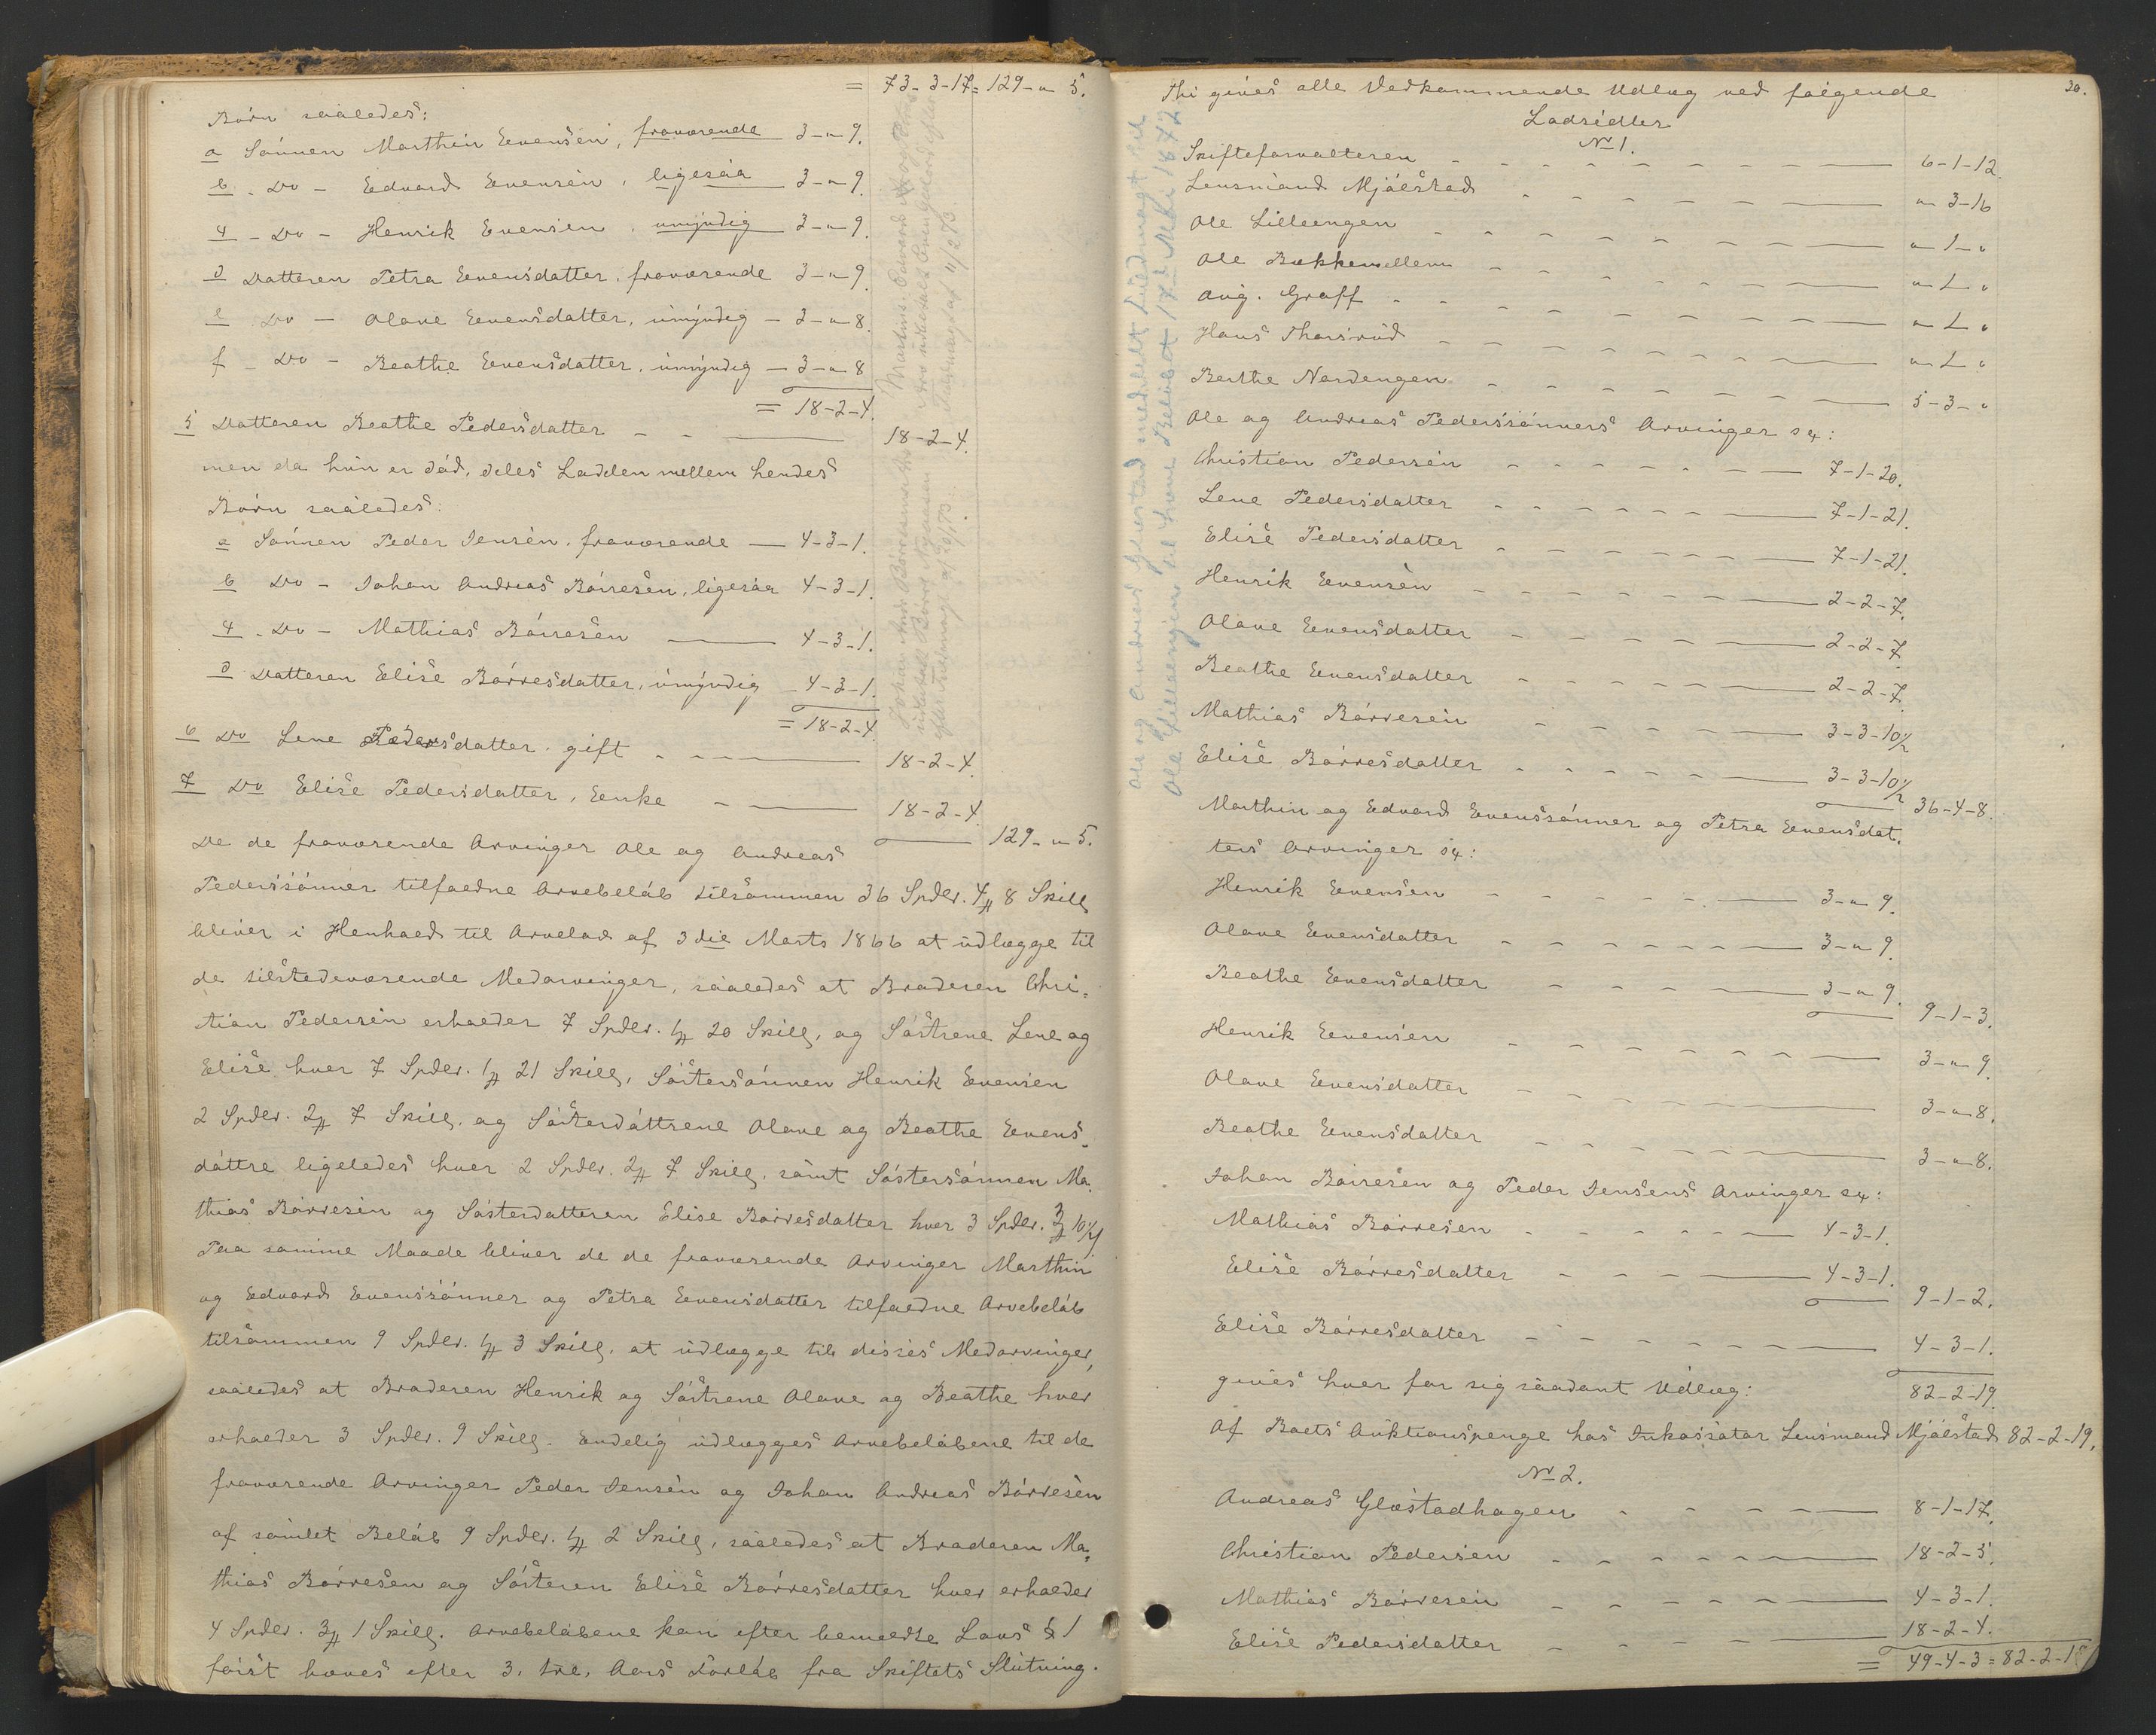 = 73-3-17 = 129-"-5.
Börn saaledes:
a Sönnen Marthin Evensen, fraværende 3-"-9.
b - Do - Edvard Evensen, ligesaa 3-"-9.
c - Do - Henrik Evensen, umyndig 3-"-9.
d Datteren Petra Evensdatter, fraværende 3-"-9.
e Do - Olave Evensdatter, umyndig - 3-"-8.
f - Do - Beathe Evensdatter, umyndig - 3-"-8
= 18-2-4.
5 Datteren Beathe Pedersdatter - - 18-2-4.
men da hun er död, deles Lodden mellem hendes
Börn saaledes:
a Sönnen Peder Jensen, fraværende - 4-3-1.
b Do - Johan Andreas Börresen, ligesaa 4-3-1.
c - Do - Mathias Börresen 4-3-1.
d Datteren Elise Börresdatter, umyndig - 4-3-1.
= 18-2-4.
6 Do Lene Pedersdatter, gift - - - 18-2-4.
7 Do Elise Pedersdatter, Enke - 18-2-4.
129-"-5.
De de fraværende Arvinger Ole og Andreas
Pederssönner tilfaldne Arvebelöb tilsammen 36 Spdlr. 4 # 8 Skill,
bliver i Henhold til Arvelov af 3die Marts 1866 at udlægge til
de tilstedeværende Medarvinger, saaledes at Broderen Chri-
stian Pedersen erholder 7 Spdlr. 1 # 20 Skill, og Söstrene Lene og
Elise hver 7 Spdlr. 1 # 21 Skill, Söstersönnen Henrik Evensen
2 Spdlr. 2 # 7 Skill. og Södterdöttrene Olave og Beathe Evens-
döttre ligeledes hver 2 Spdlr. 2 # 7 Skill. samt Söstersönnen Ma-
thias Börresen og Sösterdatteren Elise Börresdatter hver 3 Spdlr. 3 # 10 1/2
Paa samme Maade bliver de de fraværende Arvinger Marthin
og Edvard Evenssönner og Petra Evensdatter tilfaldne Arvebelöb
tilsammen 9 Spdlr. 1 # 3 Skill. at udlægge til disses Medarvinger,
saaledes at Broderen Henrik og Söstrene Olave og Beathe hver
erholder 3 Spdlr. 9 Skill. Endelig udlægges Arvebelöbene til de
fraværende Arvinger Peder Jensen og Johan Andreas Börresen
af samlet Belöb 9 Spdlr. 1 # 2 Skill, saaledes at Broderen Ma-
thias Börresen og Sösteren Elise Börresdatter hver erholder
4 Spdlr. 3 # 1 Skill. Arvebelöbene kan efter bemeldte Lovs § 1
först hæves efter 3, tre, Aars Forlöb fra Skiftets Slutning.
20.
Thi gives alle Vedkommende Udlæg ved fölgende
Lodsedler
No 1.
Skifteforvalteren - - - 6-1-12.
Lensmand Mjölstad - - - "-3-16
Ole Lilleengen - - - "-1-"
Ole Bækkemellem - - - "-1-"
Aug. Graff - - - "-1-"
Hans Thorsrud - - - "-1-"
Berthe Nordengen - - - 5-3-"
Ole og Andreas Pederssönners Arvinger sc:
Christian Pedersen - - - 7-1-20.
Lene Pedersdatter - - - 7-1-21.
Elise Pedersdatter - - - 7-1-21.
Henrik Evensen - - - 2-2-7.
Olave Evensdatter - - - 2-2-7.
Beathe Evensdatter - - - 2-2-7.
Mathias Börresen - - - 3-3-10 1/2
Elise Börresdatter - - - 3-3-10 1/2
36-4-8.
Marthin og Edvard Evenssönner og Petra Evensdat-
ters Arvinger sc:
Henrik Evensen - - - 3-"-9.
Olave Evensdatter - - - 3-"-9.
Beathe Evensdatter - - - 3-"-9.
9-1-3.
Henrik Evensen - - - 3-"-9.
Olave Evensdatter - - - 3-"-8.
Beathe Evensdatter - - - 3-"-8.
Johan Börresen og Peder Jensens Arvinger sc:
Mathias Börresen - - - 4-3-1.
Elise Börresdatter - - - 4-3-1.
9-1-2.
Elise Börresdatter - - - 4-3-1.
gives hver for sig saadant Udlæg: 82-2-19.
Af Boets Auktionspenge hos Inkassator Lensmand Mjölstad 82-2-19.
No 2.
Andreas Glæstadhagen - - - 8-1-17.
Christian Pedersen - - - 18-2-5.
Mathias Börresen - - - 4-3-1.
Elise Pedersdatter - - - 18-2-4.
= 49-4-3 = 82-2-19